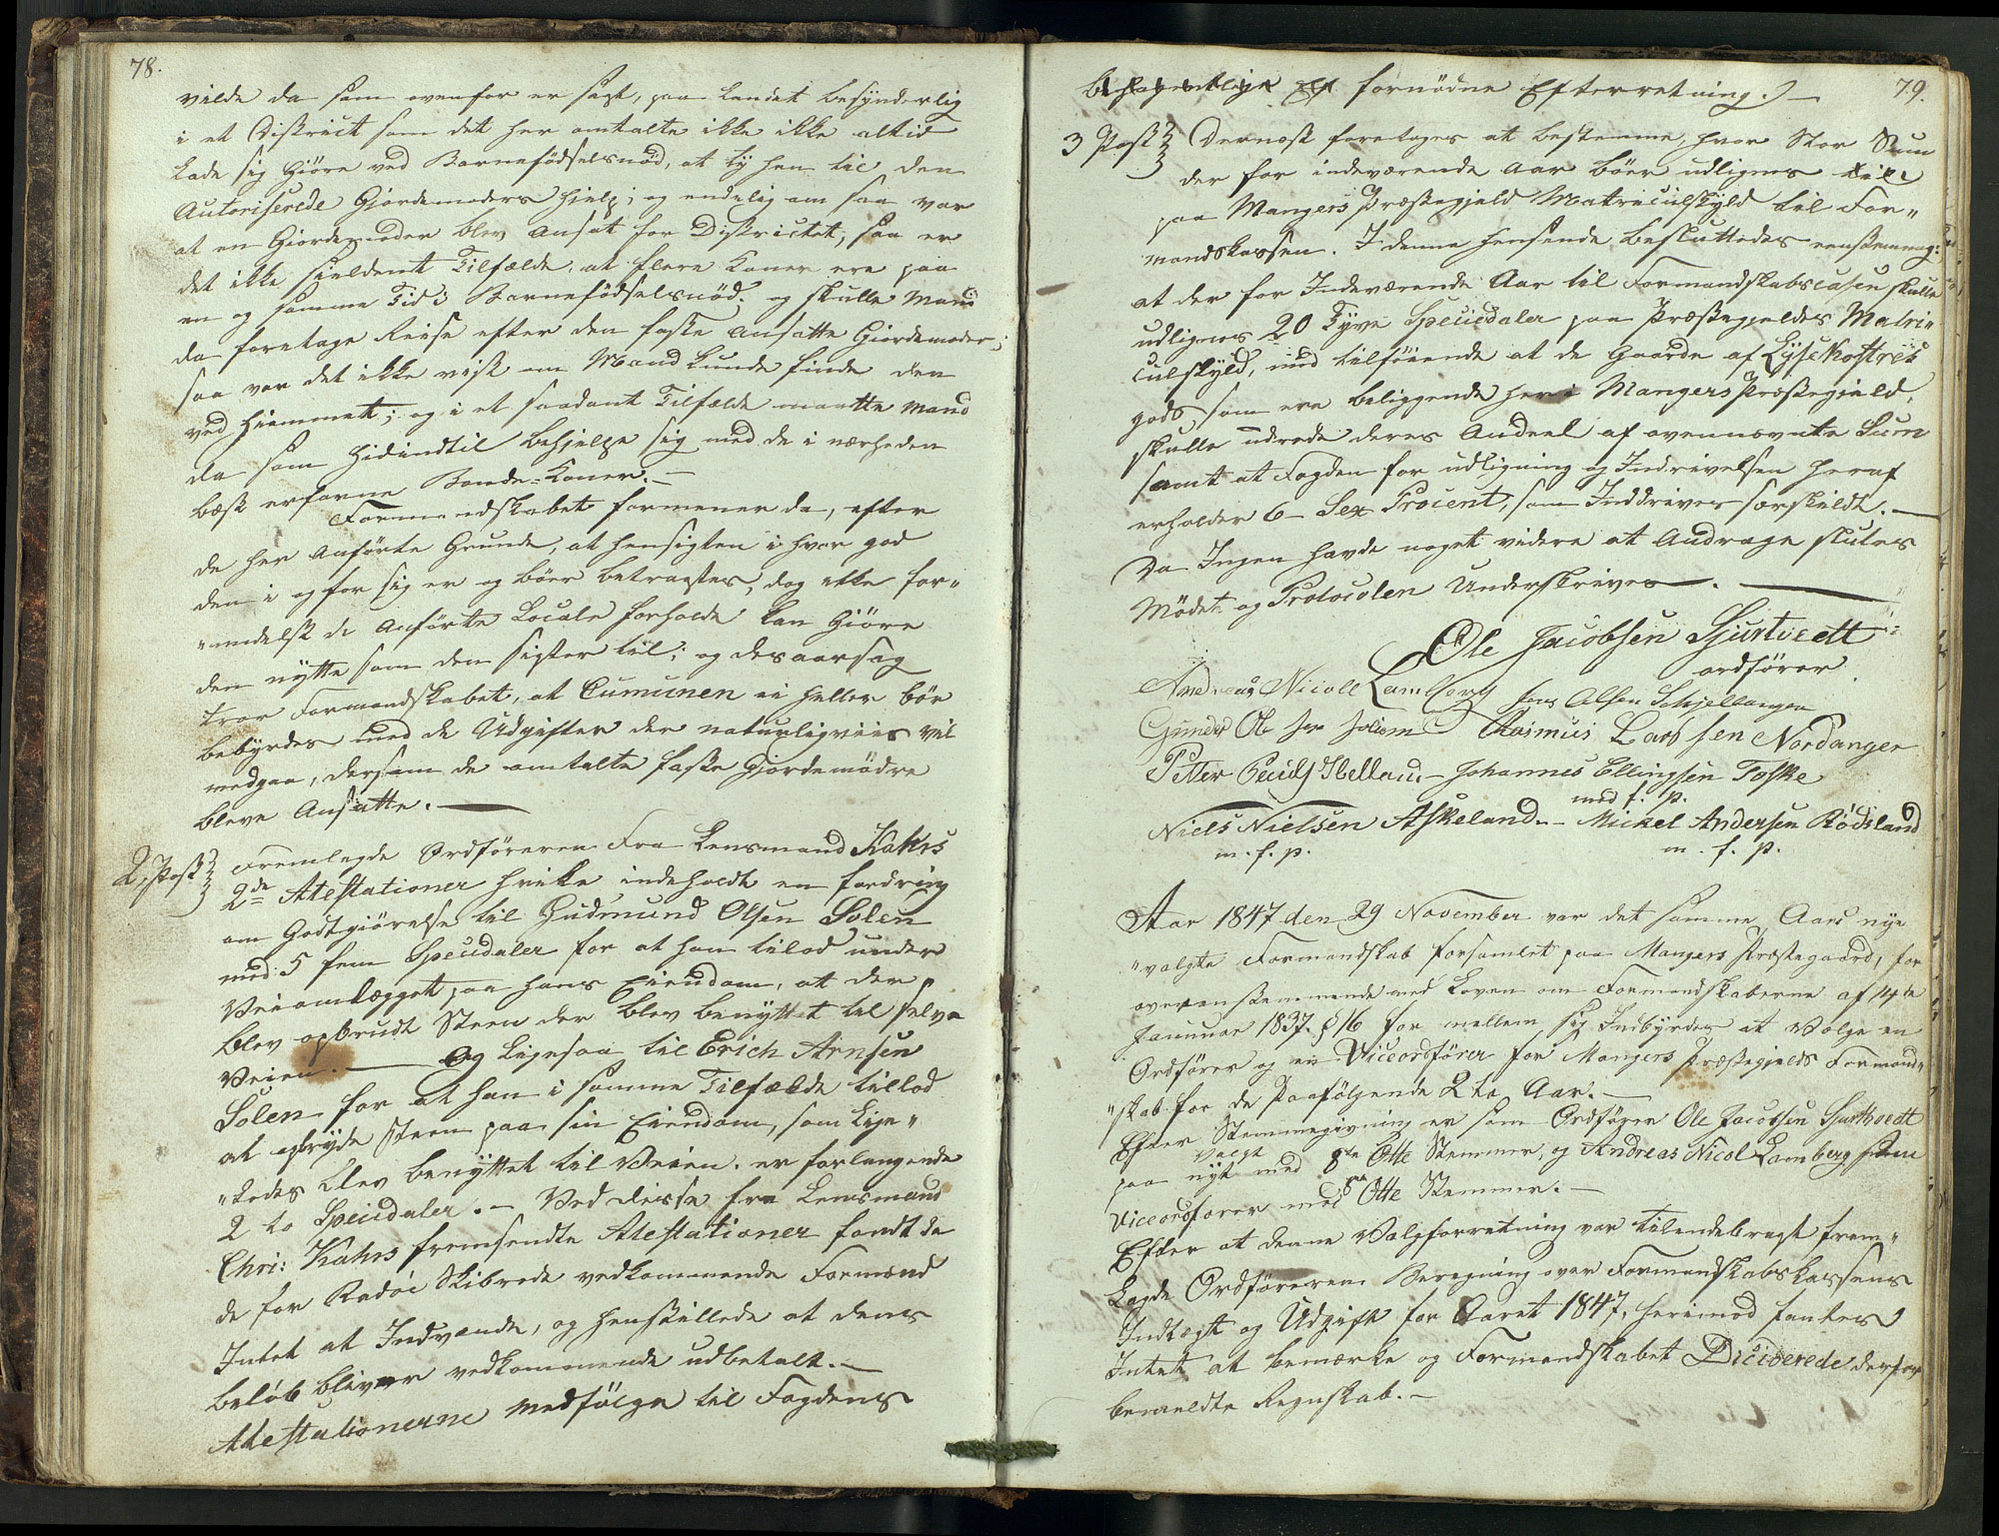 78.
vilde da som ovenfor er sagt, paa Landet besynderlig
i et District som det her omtalte ikke ikke altid
lade sig Giöre ved Barnefödselsnöd, at ty hen til den
Autoriserede Gjordemoders Hjelp; og endelig om saa var
at en Giordemoder blev ansat for Districtet, saa er
det ikke sieldent Tilfælde, at flere Koner ere paa
en og samme Tid i Barnefödselsnöd. og skulle Mand
da foretage Reise efter den faste ansatte Giordemoder;
saa var det ikke vist om Mand kunde finde den
ved Hiemmet; og i et saadant Tilfælde maatte Mand
da som Hidindtil behjelpe sig med de i nærheden
bæst erfarne Bonde-Koner. —
Formandskabet formener da, efter
de her anförte Grunde, at hensigten i hvor god
den i og for sig er og böer betragtes, dog ikke for„
„medelst de anförte Locale forholde kan Giöre
den nytte som den sigter til; og desaarsag
troer Formandskabet, at Cumunen ei heller bör
bebyrdes med de Udgifter der naturligviis vil
medgaa, dersom de omtalte faste Gjordemödre
bleve Ansatte. —
2, Post Fremlagde Ordföreren Fra Lensmand Kahrs
2de Atestationer hvilke indeholdt en fordring
om Godtgiörelse til Gudmund Olsen Solem
med 5 fem Speciedaler for at han tilod under
Veiomlægget paa hans Eiendom, at der
blev opbrudt Steen der blev benyttet til selve
Veien. — Og ligesaa til Erich Arnsen
Solem for at han i samme Tilfælde tillod
at opbryde Steen paa sin Eiendom, som lige„
„ledes blev benyttet til Veien. er forlangende
2 to Speciedaler. — Ved disse fra Lensmand
Chri: Kahrs fremsendte Atestationer fandt de
de for Radöe Skibrede vedkommende Formænd
Intet at Indvende, og henstillede at dens
belöb bliver vedkommende udbetalt. —
Atestationerne medfölge til Fogdens
79.
behagelige fornödne Efterretning. —
3 Post Dernæst foretoges at bestemme hvor Stor Sum
der for indeværende Aar böer udlignes
paa Mangers Præstegjeld Matriculskyld til For„
mandskassen. I denne hensende besluttedes eenstemmig:
at der for Indeværende Aar til Formandskabscasen skulle
udlignes 20 Tyve Speciedaler paa Præstegjeldes Matri„
culskyld, med tilföiende at de Gaarde af Lysekosters
gods, som ere beliggende her i Mangers Præstegjeld,
skulle udrede deres Andeel af ovennævnte Sum
samt at Fogden for udligning og Indrivelsen heraf
erholder 6 – Sex Procent, som Inddrives særskildt. —
Da Ingen havde noget videre at Andrage slutes
Mödet og Protocolen Underskrives. —
Ole Jacobsen Sjurtveitt
ordförer.
Andreas Nicoll Lamberg Jens Olsen Schjellanger
Gunder Ole Rasmus Larssen Nordanger
Peter – Johannes Ellingsen Toske
med f. p.
Niels Nielsen Askeland – Mickel Andersen Rödsland
m. f. p. m. f. p.
Aar 1847 den 29 November var det samme Aars nye
„valgte Formandskab forsamlet paa Mangers Præstegaard, for
overeenstemmende med Loven om Formandskaberne af 14de
Januar 1837. § 16 for mellem sig Indbyrdes at Vælge en
Ordförer og en Viceordförer for Mangers Præstegjelds Formand„
„skab for de Paafölgende 2 to Aar. —
Efter Stemmegivning er som Ordförer Ole Jacobsen Sjurthveitt
valgt
paa nyt med 8te Otte Stemmer, og Andreas Nicol Lamberg som
Viceordförer med Otte Stemmer. —
Efter at denne Valgforretning var tilendebragt frem„
lagde Ordföreren Beregning over Formandskabskassens
Indtægt og Udgift for Aaret 1847, herimod fantes
Intet at bemærke og Formandskabet Diciderede derfor
bemeldte Regnskab. —